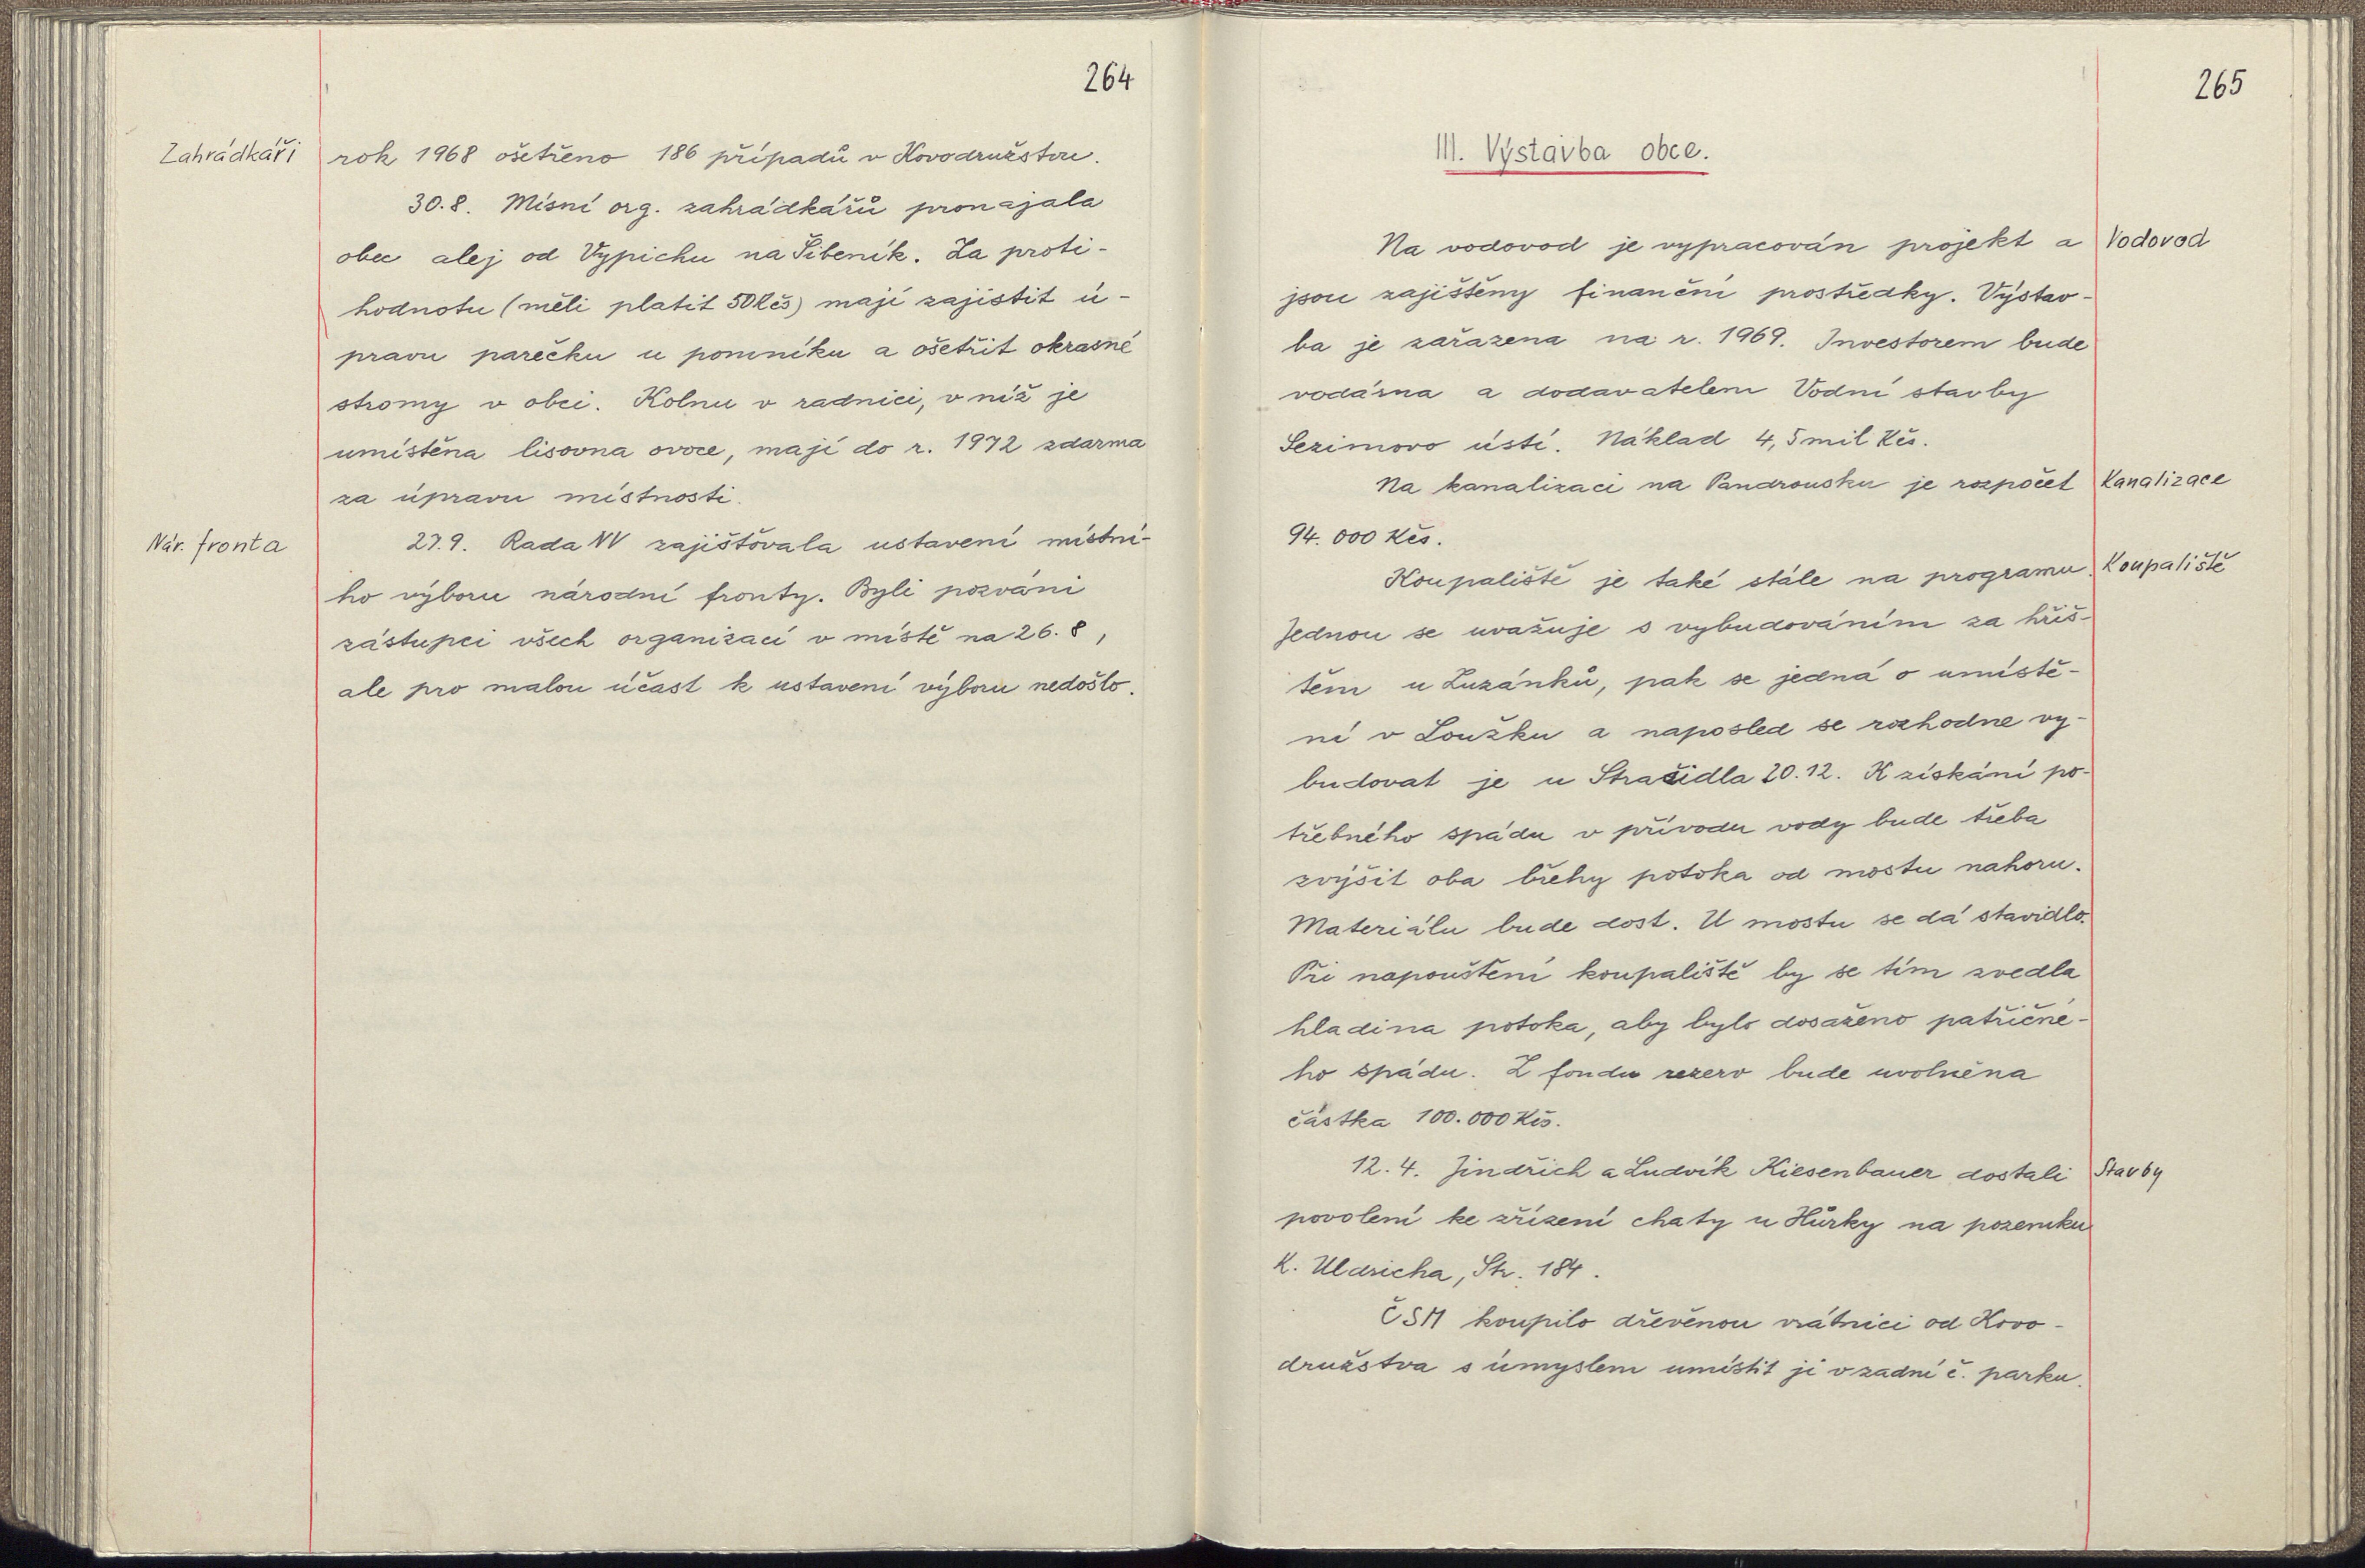 264
Zahrádkáři
rok 1968 ošetřeno 186 případů v Kovodružstvu.
30.8. Mísní org. zahrádkářů pronajala
obec alej od Vypichu na Šibeník. Za proti-
hodnotu (měli platit 50 Kčs) mají zajistit ú-
pravu parečku u pomníku a ošetřit okrasné
stromy v obci. Kolnu v radnici, v níž je
umístěna lisovna ovoce, mají do r. 1972 zdarma
za úpravu místnosti.
Nár. fronta
27.9. Rada NV zajišťovala ustavení místní-
ho výboru národní fronty. Byli pozváni
zástupci všech organizací v místě na 26.8,
ale pro malou účast k ustavení výboru nedošlo.
265
III. Výstavba obce.
Na vodovod je vypracován projekt a
Vodovod
jsou zajištěny finanční prostředky. Výstav-
ba je zařazena na r. 1969. Investorem bude
vodárna a dodavatelem Vodní stavby
Sezimovo ústí. Náklad 4,5 mil Kčs.
Na kanalizaci na Pandrousku je rozpočet
Kanalizace
94.000 Kčs.
Koupaliště je také stále na programu.
Koupaliště
Jednou se uvažuje s vybudováním za hřiš-
těm u Luzánků, pak se jedná o umístě-
ní v Loužku a naposled se rozhodne vy-
budovat je u Strašidla 20.12. K získání po-
třebného spádu v přívodu vody bude třeba
zvýšit oba břehy potoka od mostu nahoru.
Materiálu bude dost. U mostu se dá stavidlo.
Při napouštění koupaliště by se tím zvedla
hladina potoka, aby bylo dosaženo patřičné-
ho spádu. Z fondu rezerv bude uvolněna
částka 100.000 Kčs.
12.4. Jindřich a Ludvík Kiesenbauer dostali
Stavby
povolení ke zřízení chaty u Hůrky na pozemku
K. Uldricha, Str. 184.
ČSM koupilo dřevěnou vrátnici od Kovo-
družstva s úmyslem umístit ji v zadní č. parku.